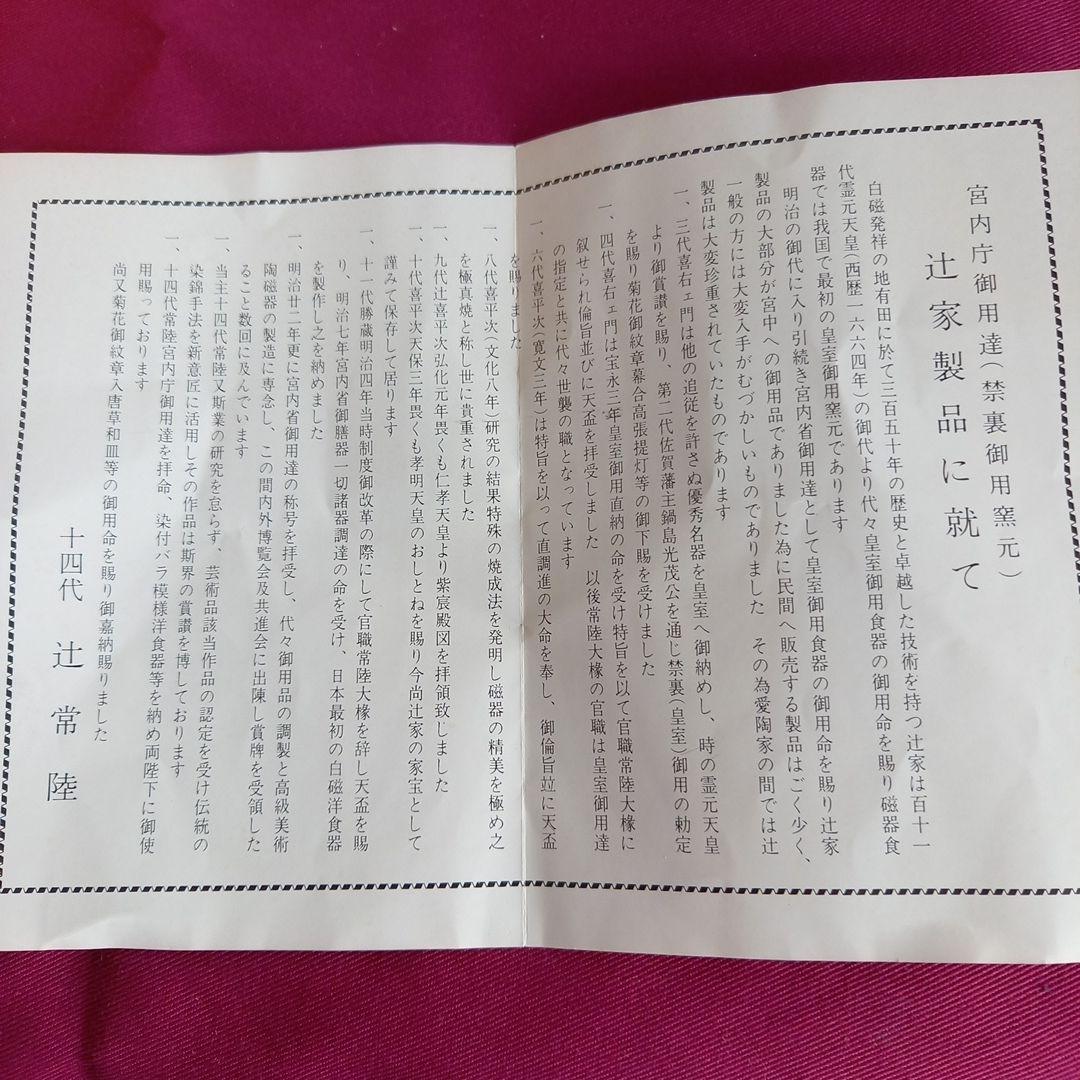 宮内庁御用達(禁裏御用窯元)
辻家製品に就て
白磁発祥の地有田に於て三百五十年の歴史と卓越した技術を持つ辻家は百十一
代霊元天皇(西歴一六六四年)の御代より代々皇室御用食器の御用命を賜り磁器食
器では我国で最初の皇室御用窯元であります
明治の御代に入り引続き宮内省御用達として皇室御用食器の御用命を賜り辻家
製品の大部分が宮中への御用品でありました為に民間へ販売する製品はごく少く、
一般の方には大変入手がむづかしいものでありました その為愛陶家の間では辻
製品は大変珍重されていたものであります
一、三代喜右ェ門は他の追従を許さぬ優秀名器を皇室へ御納めし、時の霊元天皇
より御賞讃を賜り、第二代佐賀藩主鍋島光茂公を通じ禁裏(皇室)御用の勅定
を賜り菊花御紋章幕合高張提灯等の御下賜を受けました
一、四代喜右ェ門は宝永三年皇室御用直納の命を受け特旨を以て官職常陸大椽に
叙せられ倫旨並びに天盃を拝受しました 以後常陸大椽の官職は皇室御用達
の指定と共に代々世襲の職となっています
一、六代喜平次(寛文三年)は特旨を以って直調進の大命を奉し、御倫旨竝に天盃
を賜りました
一、八代喜平次(文化八年)研究の結果特殊の焼成法を発明し磁器の精美を極め之
を極真焼と称し世に貴重されました
一、九代辻喜平次弘化元年畏くも仁孝天皇より紫宸殿図を拝領致しました
一、十代喜平次天保三年畏くも孝明天皇のおしとねを賜り今尚辻家の家宝として
謹みて保存して居ります
一、十一代勝蔵明治四年当時制度御改革の際にして官職常陸大椽を辞し天盃を賜
り、明治七年宮内省御膳器一切諸器調達の命を受け、日本最初の白磁洋食器
を製作し之を納めました
一、明治廿二年更に宮内省御用達の称号を拝受し、代々御用品の調製と高級美術
陶磁器の製造に専念し、この間内外博覧会及共進会に出陳し賞牌を受領した
ること数回に及んでいます
一、当主十四代常陸又斯業の研究を怠らず、芸術品該当作品の認定を受け伝統の
染錦手法を新意匠に活用しその作品は斯界の賞讃を博しております
一、十四代常陸宮内庁御用達を拝命、染付バラ模様洋食器等を納め両陛下に御使
用賜っております
尚又菊花御紋章入唐草和皿等の御用命を賜り御嘉納賜りました
十四代 辻 常陸